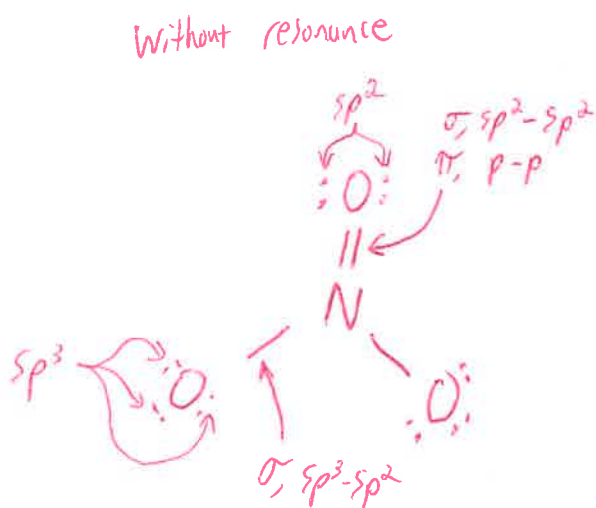 Without resonance
sp²
σ, sp²-sp²
π, p-p
:O:
||
N
sp³
O
O
σ, sp³-sp²